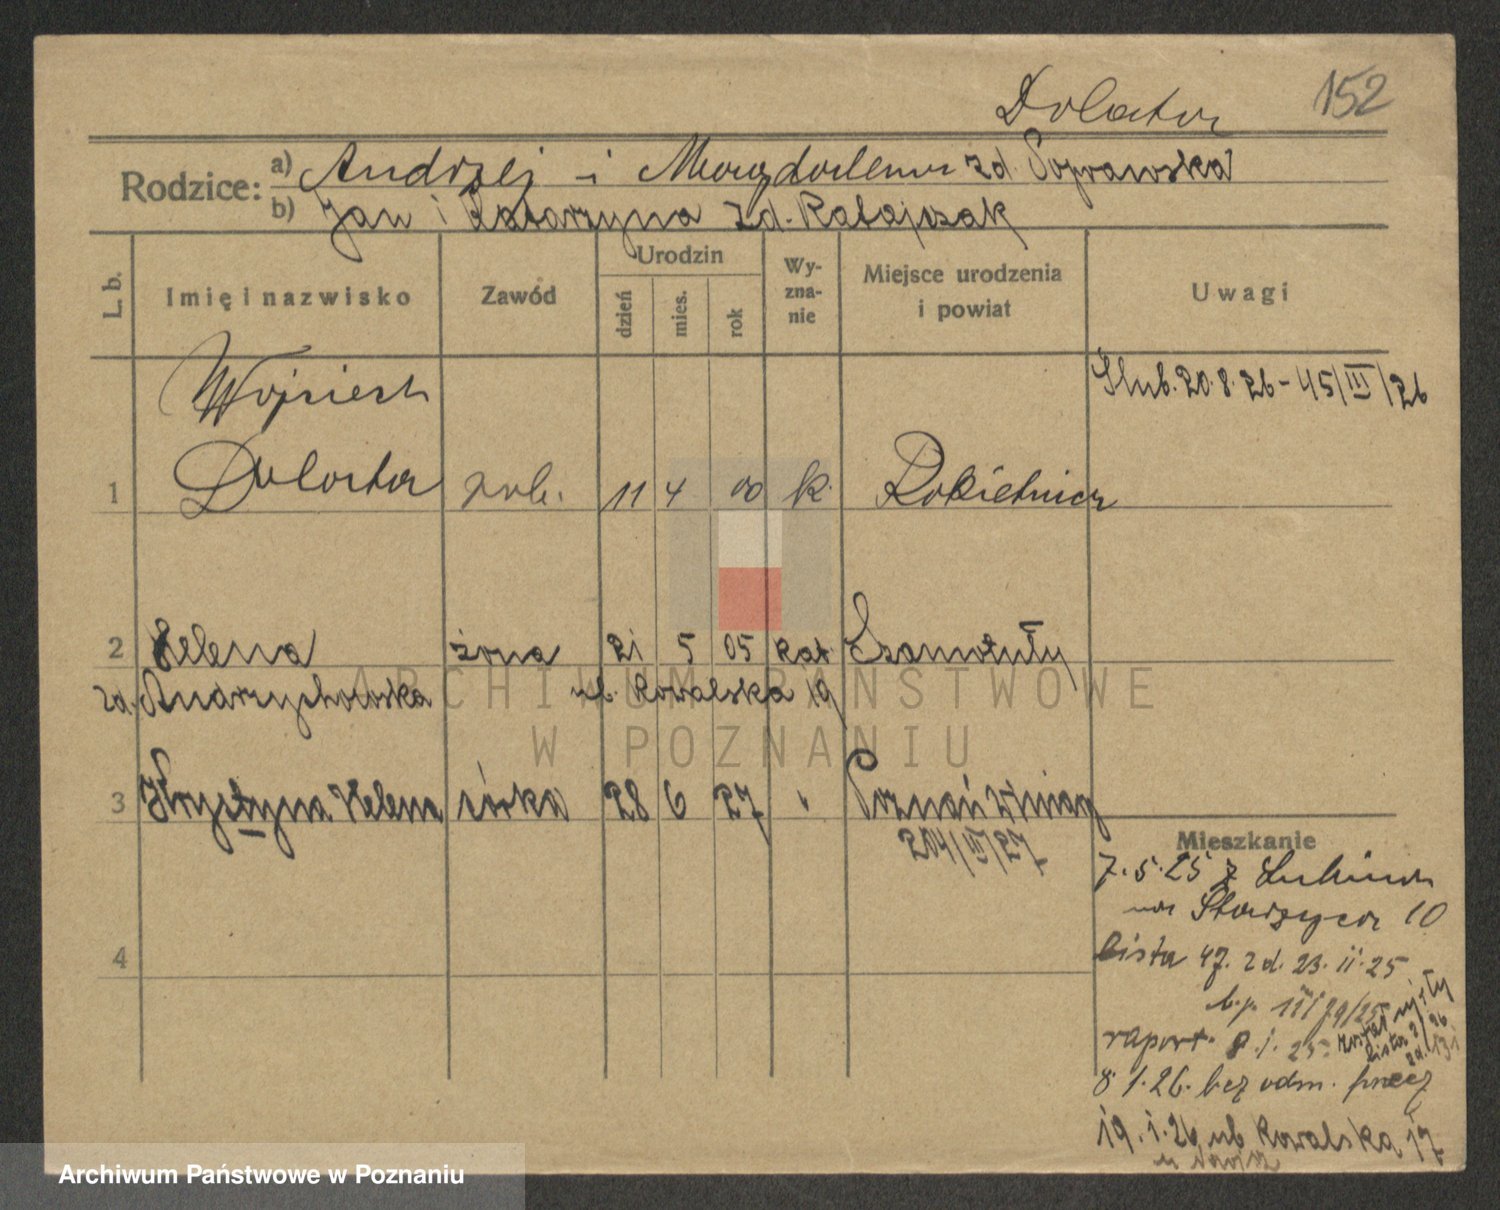 Dolata 152
Rodzice: a) Andrzej i Magdalena zd. Poprawska
b) Jan i Katarzyna zd. Ratajczak
L. b. Imię i nazwisko Zawód Urodzin dzień mies. rok Wyznanie Miejsce urodzenia i powiat Uwagi
Ślub. 20.8.26 - 45/III/26
Wojciech
1 Dolata rob. 11 4 00 k. Rokietnica
2 Helena żona 21 5 05 kat Szamotuły
zd. Andrzychowska ul. Kowalska 19
3 Krystyna Helena córka 28 6 27 " Poznań
204/III/27
4
Mieszkanie
7.5.25 z
na 10
Lista 47. zd. 23.II.25
b.p. III/79/25
raport 8.1. 25
lista 2/26
zd. 13 1
8 1.26. bez odm. precz
19.1.26 ul. Kowalska 17
ARCHIWUM PAŃSTWOWE
W POZNANIU
Archiwum Państwowe w Poznaniu